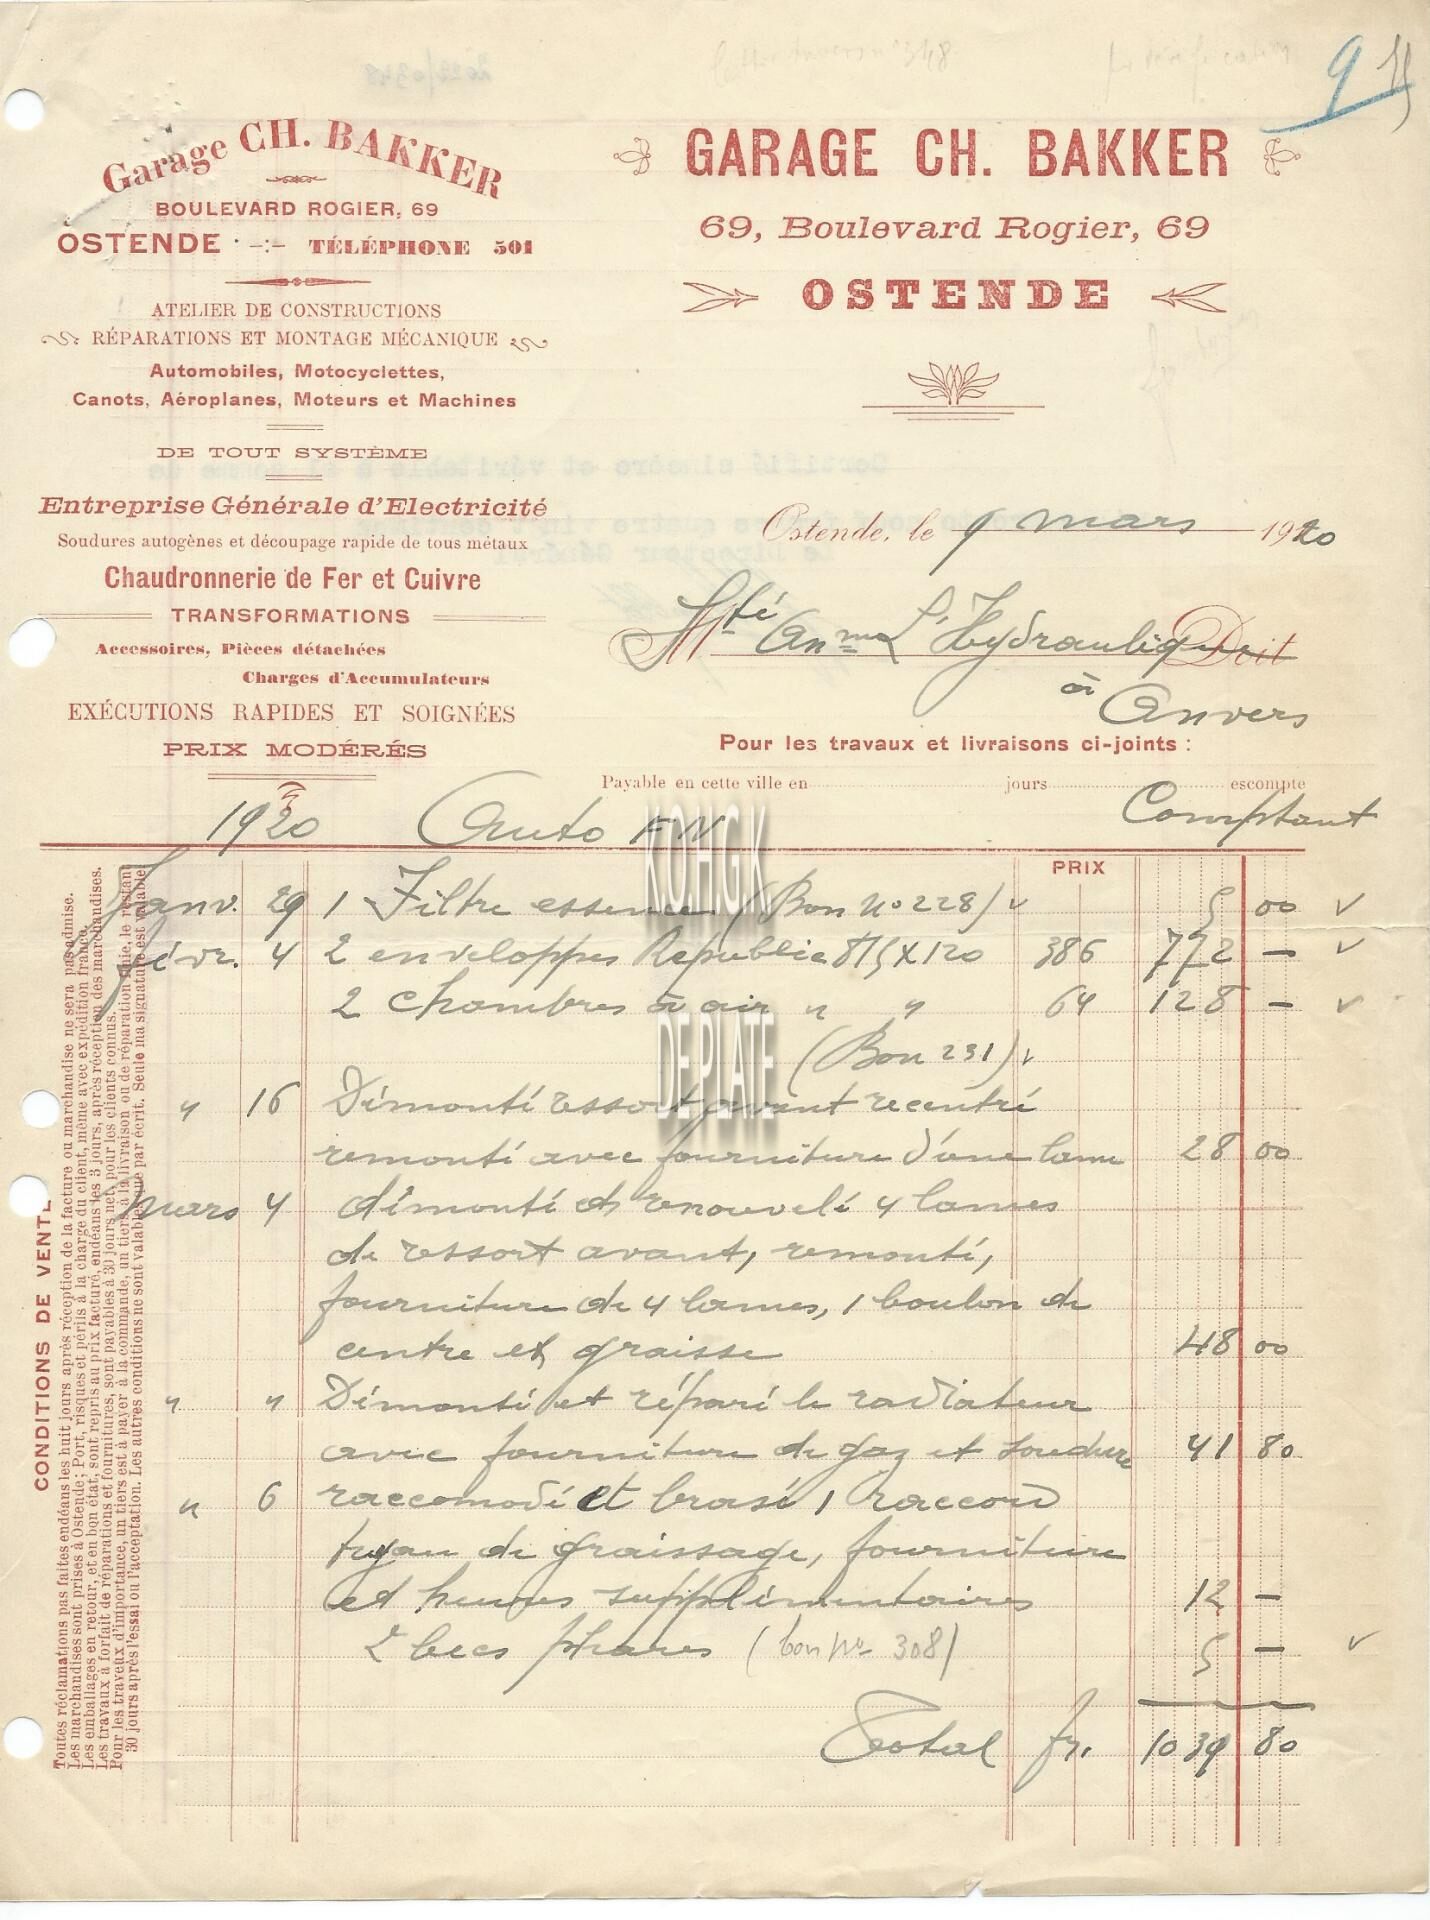 9
Garage CH. BAKKER
BOULEVARD ROGIER, 69
OSTENDE -:- TÉLÉPHONE 501
ATELIER DE CONSTRUCTIONS
RÉPARATIONS ET MONTAGE MÉCANIQUE
Automobiles, Motocyclettes,
Canots, Aéroplanes, Moteurs et Machines
DE TOUT SYSTÈME
Entreprise Générale d'Electricité
Soudures autogènes et découpage rapide de tous métaux
Chaudronnerie de Fer et Cuivre
TRANSFORMATIONS
Accessoires, Pièces détachées
Charges d'Accumulateurs
EXÉCUTIONS RAPIDES ET SOIGNÉES
PRIX MODÉRÉS
GARAGE CH. BAKKER
69, Boulevard Rogier, 69
OSTENDE
Ostende, le 9 mars 1920
Sté Anme L'Hydraulique Doit
à Anvers
Pour les travaux et livraisons ci-joints :
Payable en cette ville en jours escompte
Comptant
1920 Auto FN
PRIX
Janv. 29 1 Filtre essence (Bon No 228) 5 00
févr. 4 2 enveloppes Republic 815 x 120 386 772 —
2 chambres à air " " 64 128 —
(Bon 231)
" 16 Démonté ressort avant recentré
remonté avec fourniture d'une lame 28 00
mars 4 démonté et renouvelé 4 lames
de ressort avant, remonté,
fourniture de 4 lames, 1 boulon de
centre et graisse 48 00
" " Démonté et réparé le radiateur
avec fourniture de gaz et soudure 41 80
" 6 raccomodé et brasé 1 raccord
tuyau de graissage, fourniture
et heures supplémentaires 12 —
2 becs phares (bon No 308) 5 —
Total fr. 1039 80
CONDITIONS DE VENTE
Toutes réclamations pas faites endéans les huit jours après réception de la facture ou marchandise ne sera pas admise.
Les marchandises sont prises à Ostende; Port, risques et périls à la charge du client, même avec expédition franco.
Les emballages en retour, et en bon état, sont repris au prix facturé, endéans les 3 jours, après réception des marchandises.
Les travaux à forfait de réparations et fournitures, sont payables à 30 jours net, pour les clients connus.
Pour les travaux d'importance, un tiers est à payer à la commande, un tiers à la livraison ou de réparation finie, le restant
30 jours après l'essai ou l'acceptation. Les autres conditions ne sont valables que par écrit. Seule ma signature est valable.
K.O.H.G.K
DE PLATE